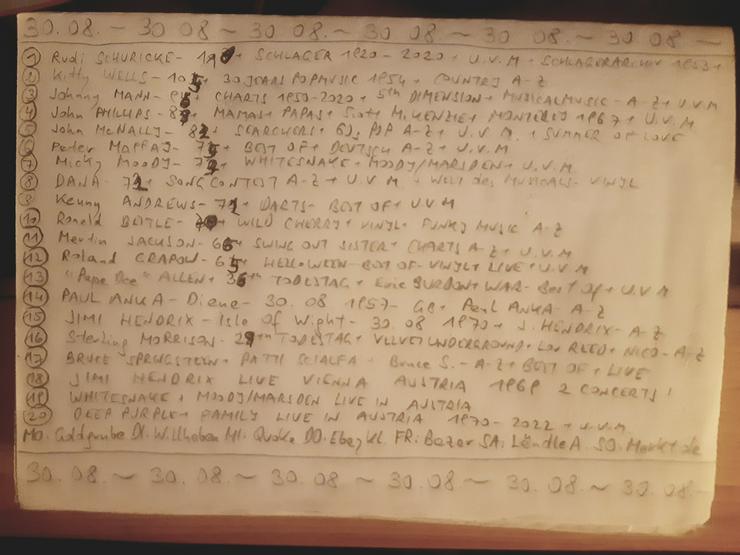 30.08. ~ 30 08 ~ 30.08. ~ 30.08. ~ 30 08. ~ 30 08. ~
1 Rudi SCHURICKE - + SCHLAGER 1920 - 2020 + U.V.M + SCHLAGERARCHIV 1953+
2 Kitty WELLS - 105+ 30 JEARS POPMUSIC 1954 + COUNTRY A-Z
3 Johnny MANN - + CHARTS 1950-2020 + 5th DIMENSION + MUSICALMUSIC - A-Z + U.V.M
4 John PHILLIPS - + MAMAS + PAPAS + Scott McKENZIE + MONTEREY 1967 + U.V.M
5 John McNALLY - 82+ SEARCHERS + 60s POP A-Z + U.V.M. + SUMMER OF LOVE
6 Peter MAFFAY - + BEST OF + DEUTSCH A-Z + U.V.M
7 Micky MOODY - + WHITESNAKE + MOODY/MARSDEN + U.V.M.
8 DANA - 72+ SONG CONTEST A-Z + U.V.M + WELT des MUSICALS - VINYL
9 Kenny ANDREWS - 72+ DARTS - BEST OF + U.V.M
10 Ronald BEITLE - + WILD CHERRY + VINYL + FUNKY MUSIC A-Z
11 Martin JACKSON - 66+ SWING OUT SISTER + CHARTS A-Z + U.V.M
12 Roland GRAPOW - 65+ HELLOWEEN - BEST OF - VINYL + LIVE + U.V.M
13 "Papa Dee" ALLEN + 36th TODESTAG + Eric BURDON + WAR - Best Of + U.V.M
14 PAUL ANKA - Diana - 30.08 1957 - GB + Paul ANKA A-Z
15 JIMI HENDRIX - Isle Of Wight - 30.08 1970 + J. HENDRIX - A-Z
16 Sterling MORRISON - th TODESTAG + VELVET UNDERGROUND + LOU REED + NICO - A-Z
17 BRUCE SPRINGSTEEN + PATTI SCIALFA + Bruce S. - A-Z + BEST OF + LIVE
18 JIMI HENDRIX LIVE VIENNA AUSTRIA 1969 2 CONCERTS!
19 WHITESNAKE + MOODY/MARSDEN LIVE IN AUSTRIA
20 DEEP PURPLE + FAMILY LIVE IN AUSTRIA 1970 - 2022 + U.V.M.
MO. Goldgrube DI. Willhaben MI. Quoka DO. Ebay Kl. FR: Bazar SA: Ländle A. SO. Markt de
30.08. ~ 30.08. ~ 30.08. ~ 30 08. ~ 30.08. ~ 30.08. ~